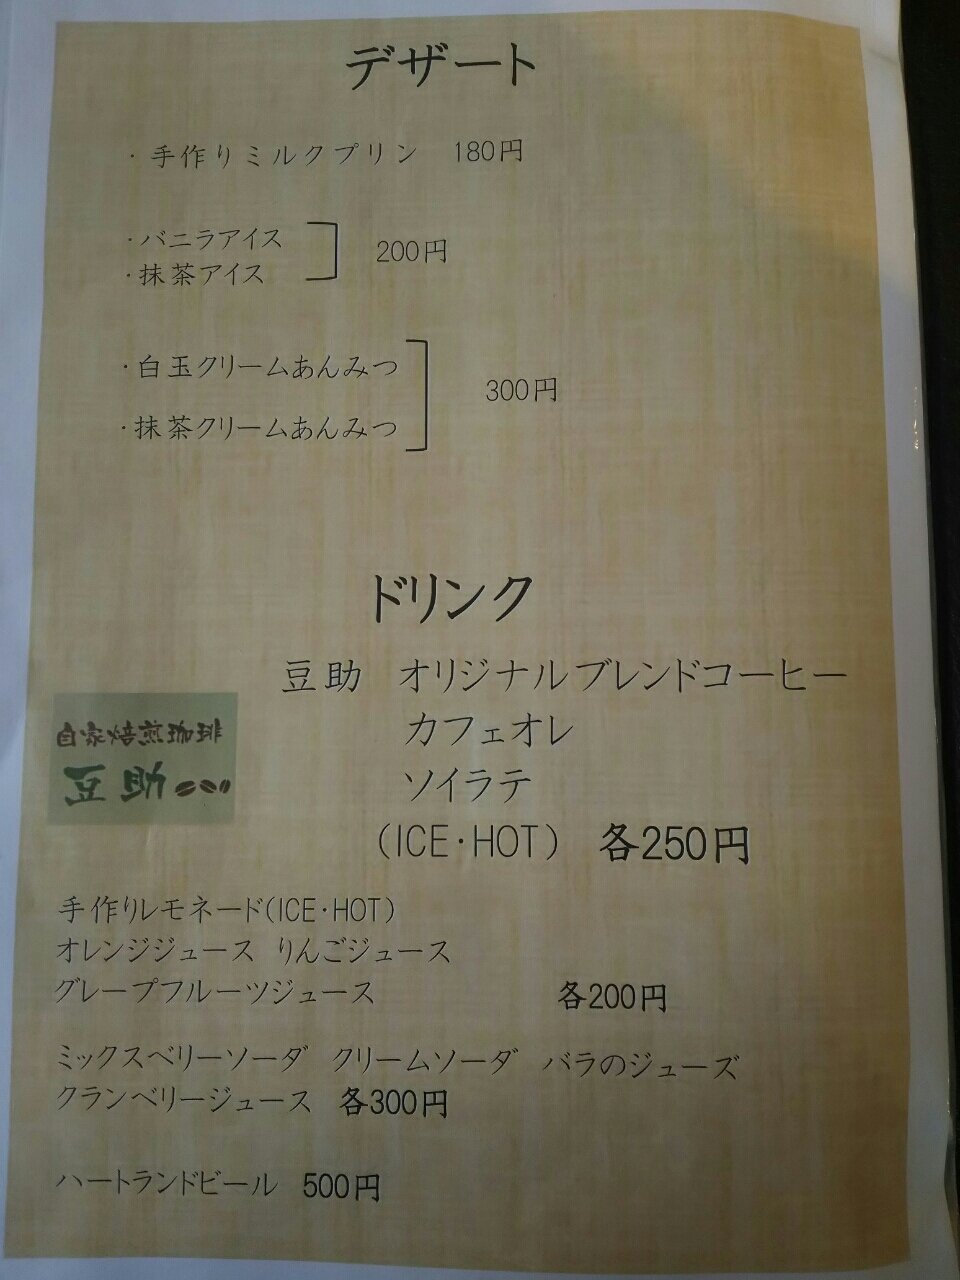 デザート
・手作りミルクプリン 180円
・バニラアイス
・抹茶アイス
200円
・白玉クリームあんみつ
・抹茶クリームあんみつ
300円
ドリンク
豆助 オリジナルブレンドコーヒー
カフェオレ
ソイラテ
(ICE・HOT) 各250円
自家焙煎珈琲
豆助
手作りレモネード(ICE・HOT)
オレンジジュース りんごジュース
グレープフルーツジュース 各200円
ミックスベリーソーダ クリームソーダ バラのジューズ
クランベリージュース 各300円
ハートランドビール 500円